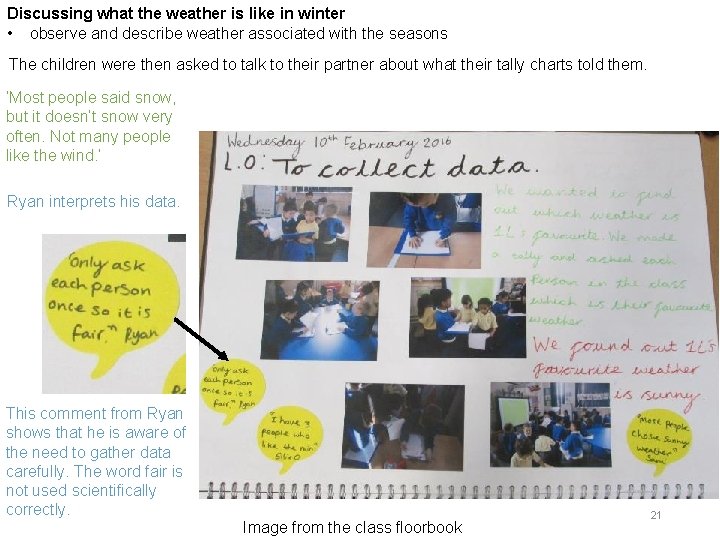 Discussing what the weather is like in winter
• observe and describe weather associated with the seasons
The children were then asked to talk to their partner about what their tally charts told them.
‘Most people said snow,
but it doesn’t snow very
often. Not many people
like the wind.’
Ryan interprets his data.
"Only ask
each person
once so it is
fair." Ryan
This comment from Ryan
shows that he is aware of
the need to gather data
carefully. The word fair is
not used scientifically
correctly.
Wednesday 10th February 2016
L.O: To collect data.
We wanted to find
out which weather is
1L's favourite. We made
a tally and asked each
person in the class
which is their favourite
weather.
We found out 1L's
favourite weather
is sunny.
"Only ask
each person
once so it is
fair." Ryan
"I have 3
people who
like the rain"
"Most people
chose sunny
weather"
Image from the class floorbook
21